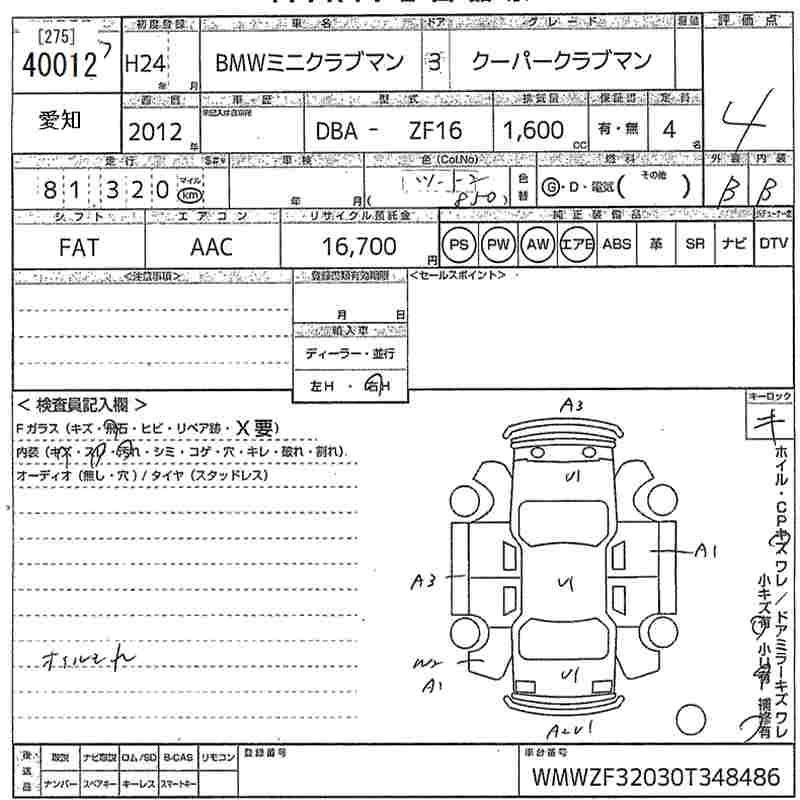 [275] 初度登録 車名 ドア グレード 評価点
40012 H24 年 月 BMWミニクラブマン 3 クーパークラブマン 4
愛知 西暦 車歴 型式 排気量 保証書 定員
2012 年 DBA - ZF16 1,600 CC 有・無 4 名
走行 車検 色(Col.No) 燃料 外装 内装
81320 マイル km 年 月 ( 850 ) 色替 G・D・電気( その他 ) B B
シフト エアコン リサイクル預託金 純正装備品
FAT AAC 16,700 円 PS PW AW エアB ABS 革 SR ナビ DTV
<注意事項> 登録書類有効期限 <セールスポイント>
月 日
輸入車
ディーラー・並行
左H ・ 右H
< 検査員記入欄 > A3 キーロック
Fガラス (キズ・飛石・ヒビ・リペア跡・X要) キ
内装 (キズ・スレ・汚れ・シミ・コゲ・穴・キレ・破れ・割れ)
オーディオ (無し・穴) / タイヤ (スタッドレス)
U1
A1
A3 U1
W2
A1 U1
A2U1
ホイル・CPキズ ワレ / ドアミラーキズ ワレ
小キズ有 小U有 補修有
後送品 取説 ナビ取説 ロム/SD B-CAS リモコン 登録番号 車台番号
ナンバー スペアキー キーレス スマートキー WMWZF32030T348486